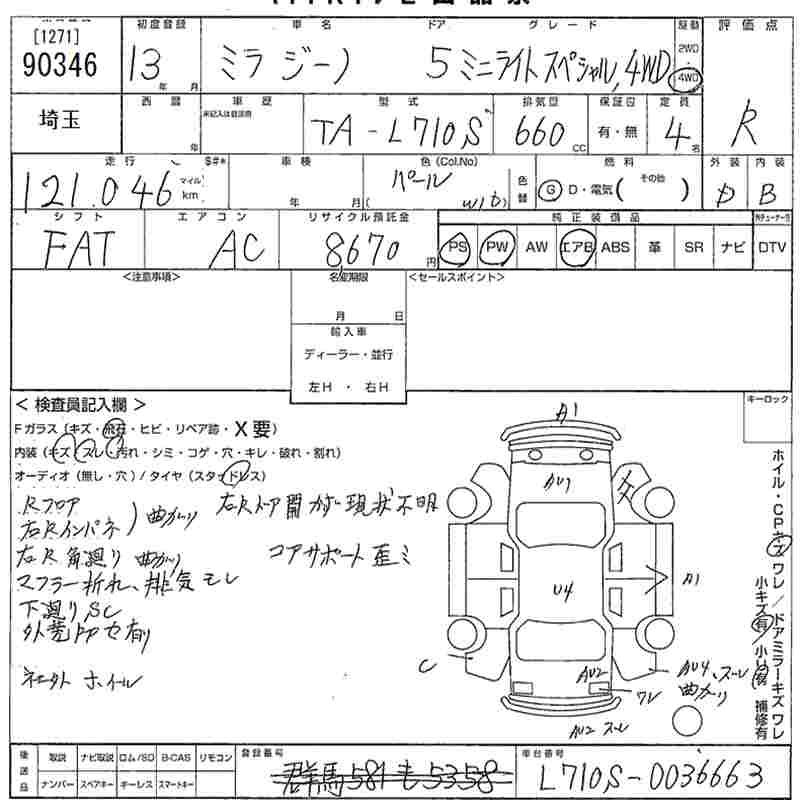 [1271]
90346
初度登録
車名
ドア
グレード
駆動
評価点
13
年 月
ミラジーノ
5
ミニライトスペシャル, 4WD
2WD
・
4WD
埼玉
西暦
年
車歴
未記入は自家用
型式
TA-L710S
排気量
660
CC
保証書
有・無
定員
4
名
R
走行
$#*
車検
色(Col.No)
燃料
外装
内装
121.046
マイル
km
年 月
パール
(
W16)
色替
G D・電気( その他 )
D
B
シフト
エアコン
リサイクル預託金
純正装備品
FAT
AC
8670
円
PS PW AW エアB ABS 革 SR ナビ DTV
<注意事項>
名変期限
<セールスポイント>
月 日
輸入車
ディーラー・並行
左H ・ 右H
< 検査員記入欄 >
キーロック
Fガラス(キズ・飛石・ヒビ・リペア跡・X要)
内装(キズ・スレ・汚れ・シミ・コゲ・穴・キレ・破れ・割れ)
オーディオ(無し・穴)/タイヤ(スタッドレス)
Rフロア
右Rインパネ ) 曲がり
右Rドア開かず現状不明
右R角廻り 曲がり
コアサポート歪ミ
マフラー折れ、排気モレ
下廻りSC
外装凹凸セ有り
社外ホイール
A1
AU1
U4
A1
C
AU2
ワレ
AU4、スレ
曲がり
AU2 スレ
ホイル・CPキズ ワレ/ドアミラーキズ ワレ
小キズ有/小凹有 補修有
後送品
取説 ナビ取説 ロム/SD B-CAS リモコン
ナンバー スペアキー キーレス スマートキー
登録番号
群馬581も5358
車台番号
L710S-0036663